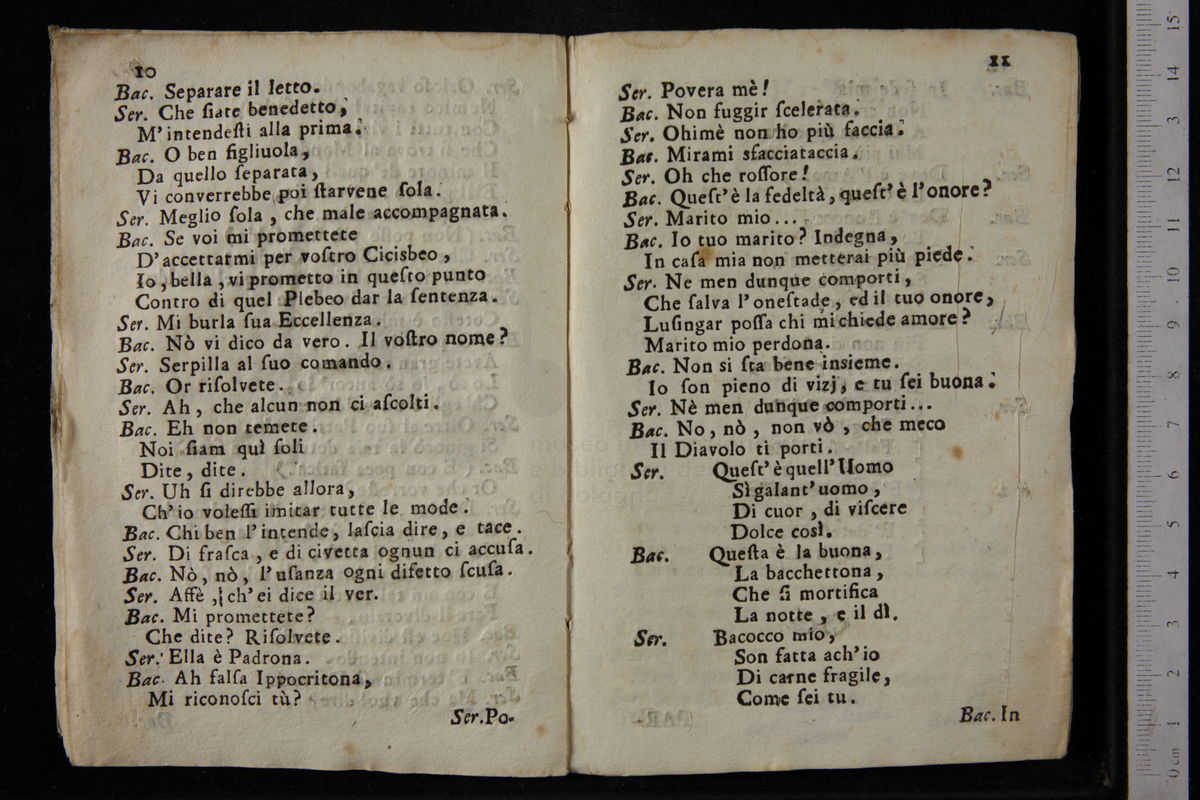 10
Bac. Separare il letto.
Ser. Che ſiate benedetto,
M'intendeſti alla prima.
Bac. O ben figliuola,
Da quello ſeparata,
Vi converrebbe poi ſtarvene ſola.
Ser. Meglio ſola, che male accompagnata.
Bac. Se voi mi promettete
D'accettarmi per voſtro Cicisbeo,
Io, bella, vi prometto in queſto punto
Contro di quel Plebeo dar la ſentenza.
Ser. Mi burla ſua Eccellenza.
Bac. Nò vi dico da vero. Il voſtro nome?
Ser. Serpilla al ſuo comando.
Bac. Or riſolvete.
Ser. Ah, che alcun non ci aſcolti.
Bac. Eh non temete.
Noi ſiam quì ſoli
Dite, dite.
Ser. Uh ſi direbbe allora,
Ch'io voleſſi imitar tutte le mode.
Bac. Chi ben l'intende, laſcia dire, e tace.
Ser. Di fraſca, e di civetta ognun ci accuſa.
Bac. Nò, nò, l'uſanza ogni difetto ſcuſa.
Ser. Affè, ch'ei dice il ver.
Bac. Mi promettete?
Che dite? Riſolvete.
Ser. Ella è Padrona.
Bac. Ah falſa Ippocritona,
Mi riconoſci tù?
Ser. Po-
11
Ser. Povera mè!
Bac. Non fuggir ſcelerata.
Ser. Ohimè non ho più faccia.
Bac. Mirami sfacciataccia.
Ser. Oh che roſſore!
Bac. Queſt'è la fedeltà, queſt'è l'onore?
Ser. Marito mio...
Bac. Io tuo marito? Indegna,
In caſa mia non metterai più piede.
Ser. Ne men dunque comporti,
Che ſalva l'oneſtade, ed il tuo onore,
Luſingar poſſa chi mi chiede amore?
Marito mio perdona.
Bac. Non si ſta bene insieme.
Io ſon pieno di vizj, e tu ſei buona.
Ser. Nè men dunque comporti...
Bac. No, nò, non vò, che meco
Il Diavolo ti porti.
Ser. Queſt'è quell'Uomo
Sì galant'uomo,
Di cuor, di viſcere
Dolce così.
Bac. Queſta è la buona,
La bacchettona,
Che ſi mortifica
La notte, e il dì.
Ser. Bacocco mio,
Son fatta ach'io
Di carne fragile,
Come ſei tu.
Bac. In